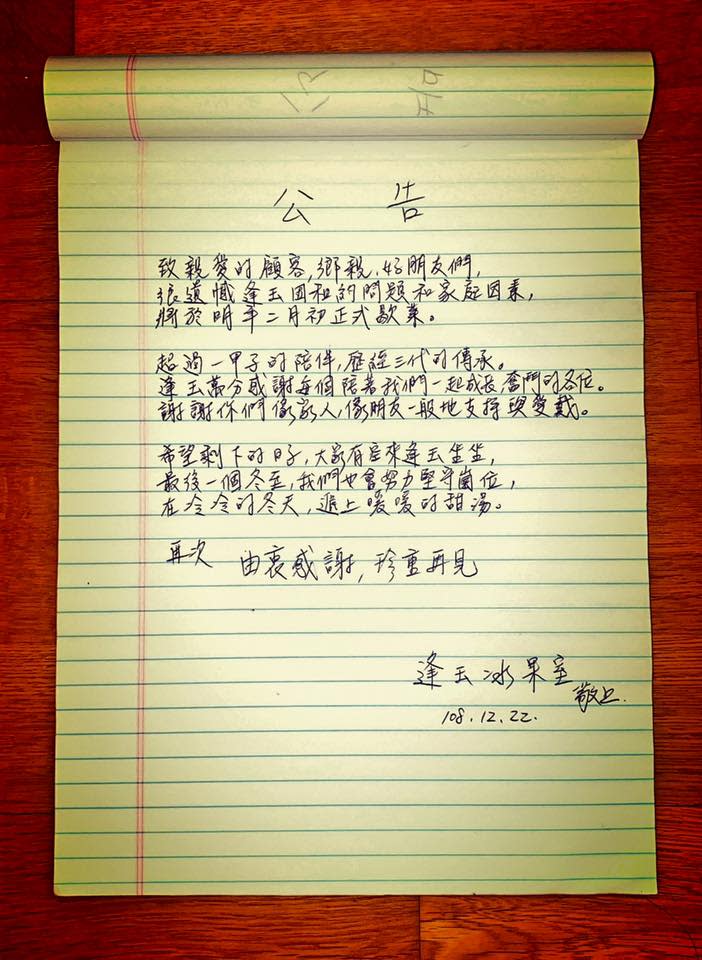 公 告
致親愛的顧客,鄉親,好朋友們,
很遺憾逢玉因租約問題和家庭因素,
將於明年二月初正式歇業。
超過一甲子的陪伴,歷經三代的傳承。
逢玉萬分感謝每個陪著我們一起成長奮鬥的各位。
謝謝你們像家人,像朋友一般地支持與愛戴。
希望剩下的日子,大家有空來逢玉坐坐,
最後一個冬至,我們也會努力堅守崗位,
在冷冷的冬天,遞上暖暖的甜湯。
再次 由衷感謝,珍重再見
逢玉冰果室
敬上.
108.12.22.